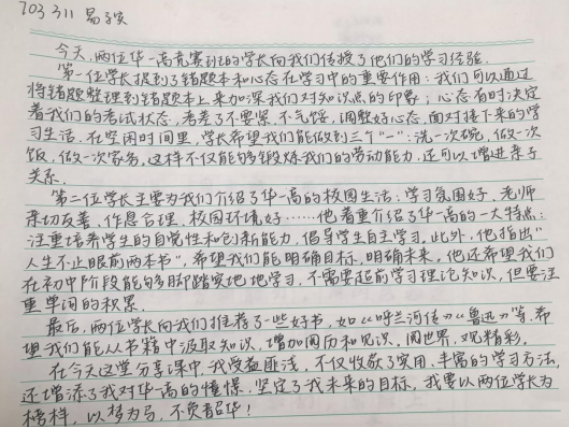 703 311 易子宾
今天,两位华一高竞赛班的学长向我们传授了他们的学习经验。
第一位学长提到了错题本和心态在学习中的重要作用:我们可以通过
将错题整理到错题本上来加深我们对知识点的印象;心态有时决定
着我们的考试状态,考差了不要紧、不气馁,调整好心态,面对接下来的学
习生活。在空闲时间里,学长希望我们能做到三个“一”:洗一次碗,做一次
饭,做一次家务,这样不仅能够锻炼我们的劳动能力,还可以增进亲子
关系。
第二位学长主要为我们介绍了华一高的校园生活:学习氛围好、老师
亲切友善、作息合理、校园环境好……他着重介绍了华一高的一大特点:
注重培养学生的自觉性和创新能力,倡导学生自主学习。此外,他指出“
人生不止眼前两本书”,希望我们能明确目标,明确未来,他还希望我们
在初中阶段能够脚踏实地地学习,不需要超前学习理论知识,但要注
重单词的积累。
最后,两位学长向我们推荐了一些好书,如《呼兰河传》《鲁迅》等,希
望我们能从书籍中汲取知识,增加阅历和见识,阅世界,观精彩。
在今天这堂分享课中,我受益匪浅,不仅收获了实用、丰富的学习方法,
还增添了我对华一高的憧憬,坚定了我未来的目标,我要以两位学长为
榜样,以梦为马,不负韶华!